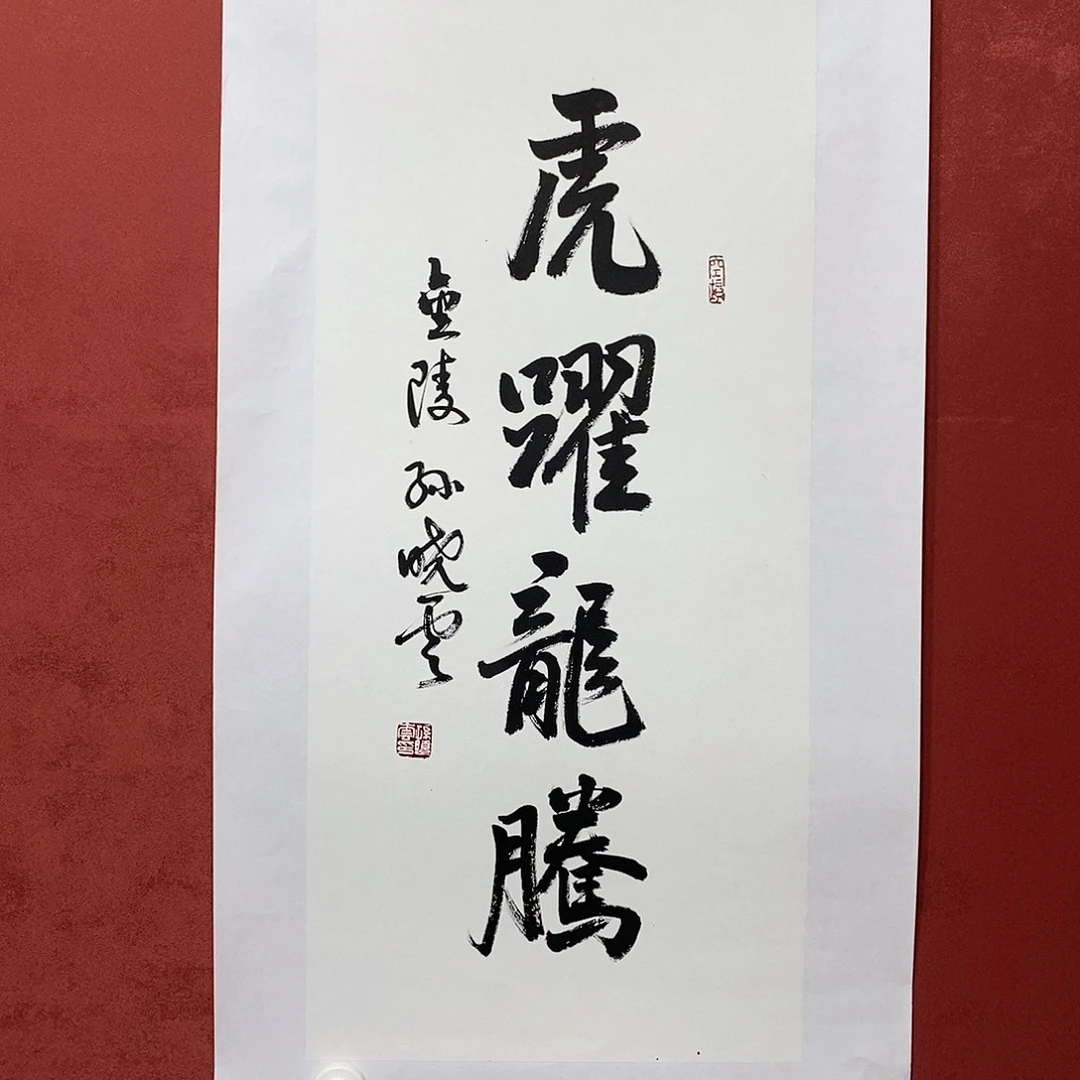 虎躍龍騰
金陵 孫曉雲